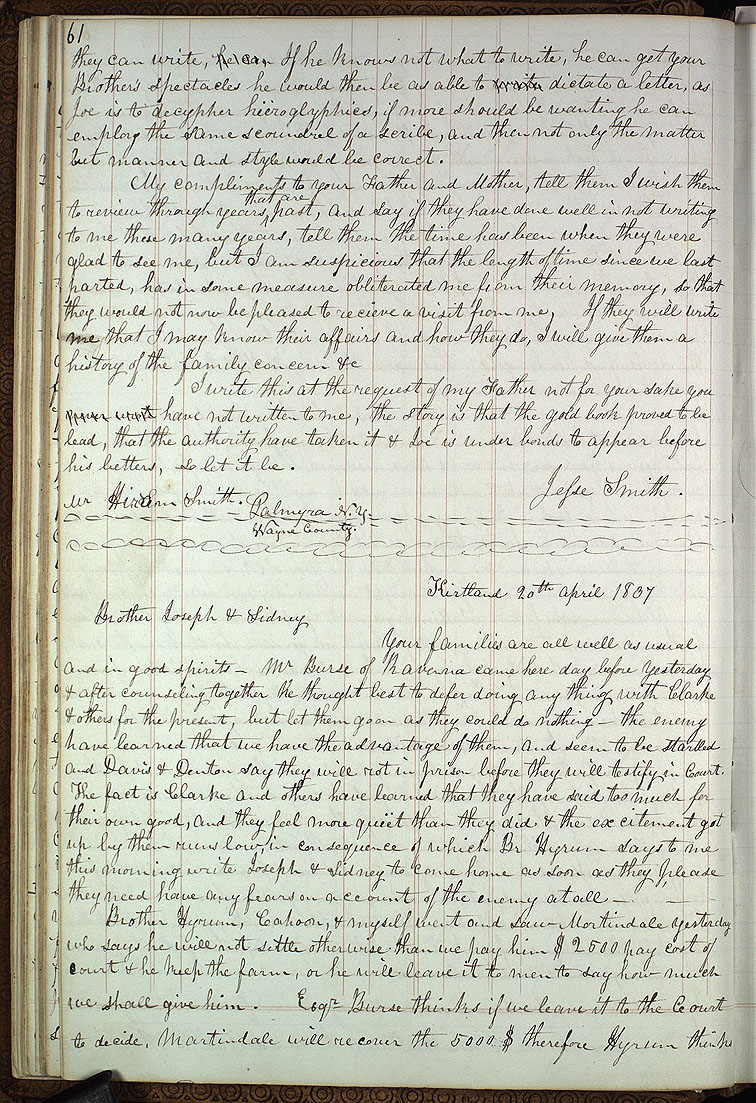 61
they can write, he can If he knows not what to write, he can get your
Brothers spectacles he would then be as able to write dictate a letter, as
Joe is to decypher hieroglyphics, if more should be wanting he can
employ the same scoundrel of a scribe, and then not only the matter
but manner and style would be correct.
My compliments to your Father and Mother, tell them I wish them
to review through years, that are past, and say if they have done well in not writing
to me these many years, tell them the time has been when they were
glad to see me, but I am suspicious that the length of time since we last
parted, has in some measure obliterated me from their memory, so that
they would not now be pleased to recieve a visit from me, If they will write
me that I may know their affairs and how they do, I will give them a
history of the family concern &c
I write this at the request of my Father not for your sake you
have not written to me, the story is that the gold book proved to be
lead, that the authority have taken it & Joe is under bonds to appear before
his betters, so let it be.
Jesse Smith.
Mr Hiram Smith. Palmyra N.Y.
Wayne County.
Kirtland 20th April 1837
Brother Joseph & Sidney
Your families are all well as usual
and in good spirits - Mr Burse of Ravenna came here day before yesterday
& after counseling together he thought best to defer doing any thing with Clarke
& others for the present, but let them go on as they could do nothing - the enemy
have learned that we have the advantage of them, and seem to be startled
and Davis & Denton say they will rot in prison before they will testify in Court.
The fact is Clarke and others have learned that they have said too much for
their own good, and they feel more quiet than they did & the excitement got
up by them runs low, in consequence of which Br Hyrum says to me
this morning write Joseph & Sidney to come home as soon as they please
they need have any fears on account of the enemy at all -
Brother Hyrum, Cahoon, & myself went and saw Martindale yesterday
who says he will not settle otherwise than we pay him $2500 pay cost of
court & he keep the farm, or he will leave it to men to say how much
we shall give him. Esqr Burse thinks if we leave it to the Court
to decide, Martindale will recover the 5000 $ therefore Hyrum thinks